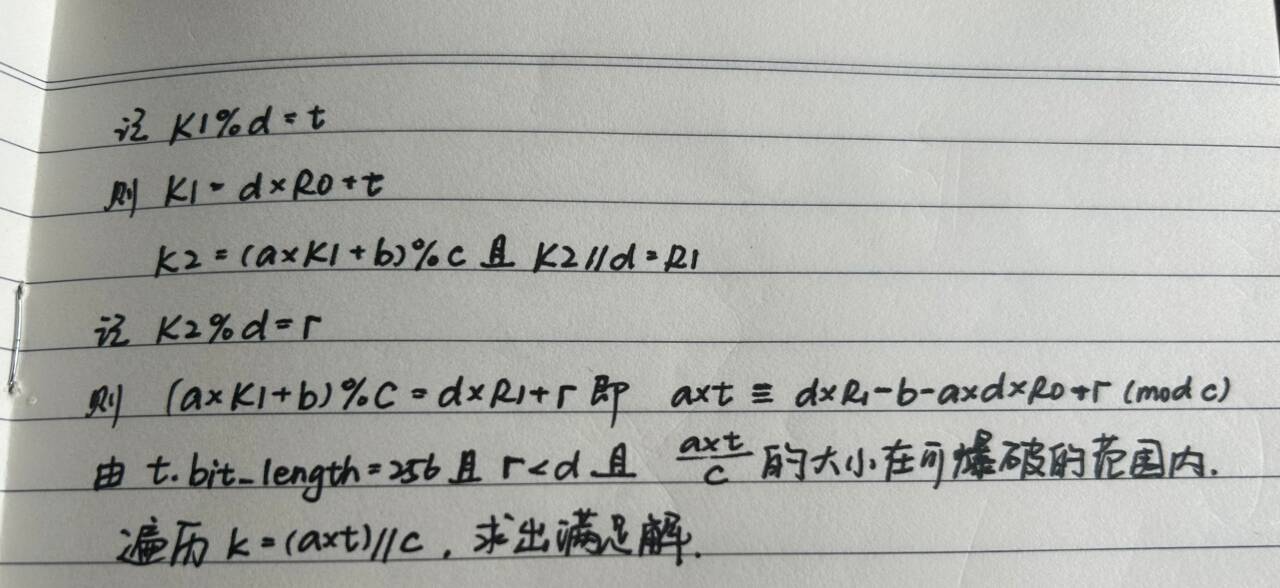 记 K1%d=t
则 K1=d×R0+t
K2=(a×K1+b)%c 且 K2//d=R1
记 K2%d=r
则 (a×K1+b)%C=d×R1+r 即 a×t ≡ d×R1-b-a×d×R0+r (mod c)
由 t.bit_length=256 且 r<d 且 a×t/c 的大小在可爆破的范围内.
遍历 k=(a×t)//c, 求出满足解.